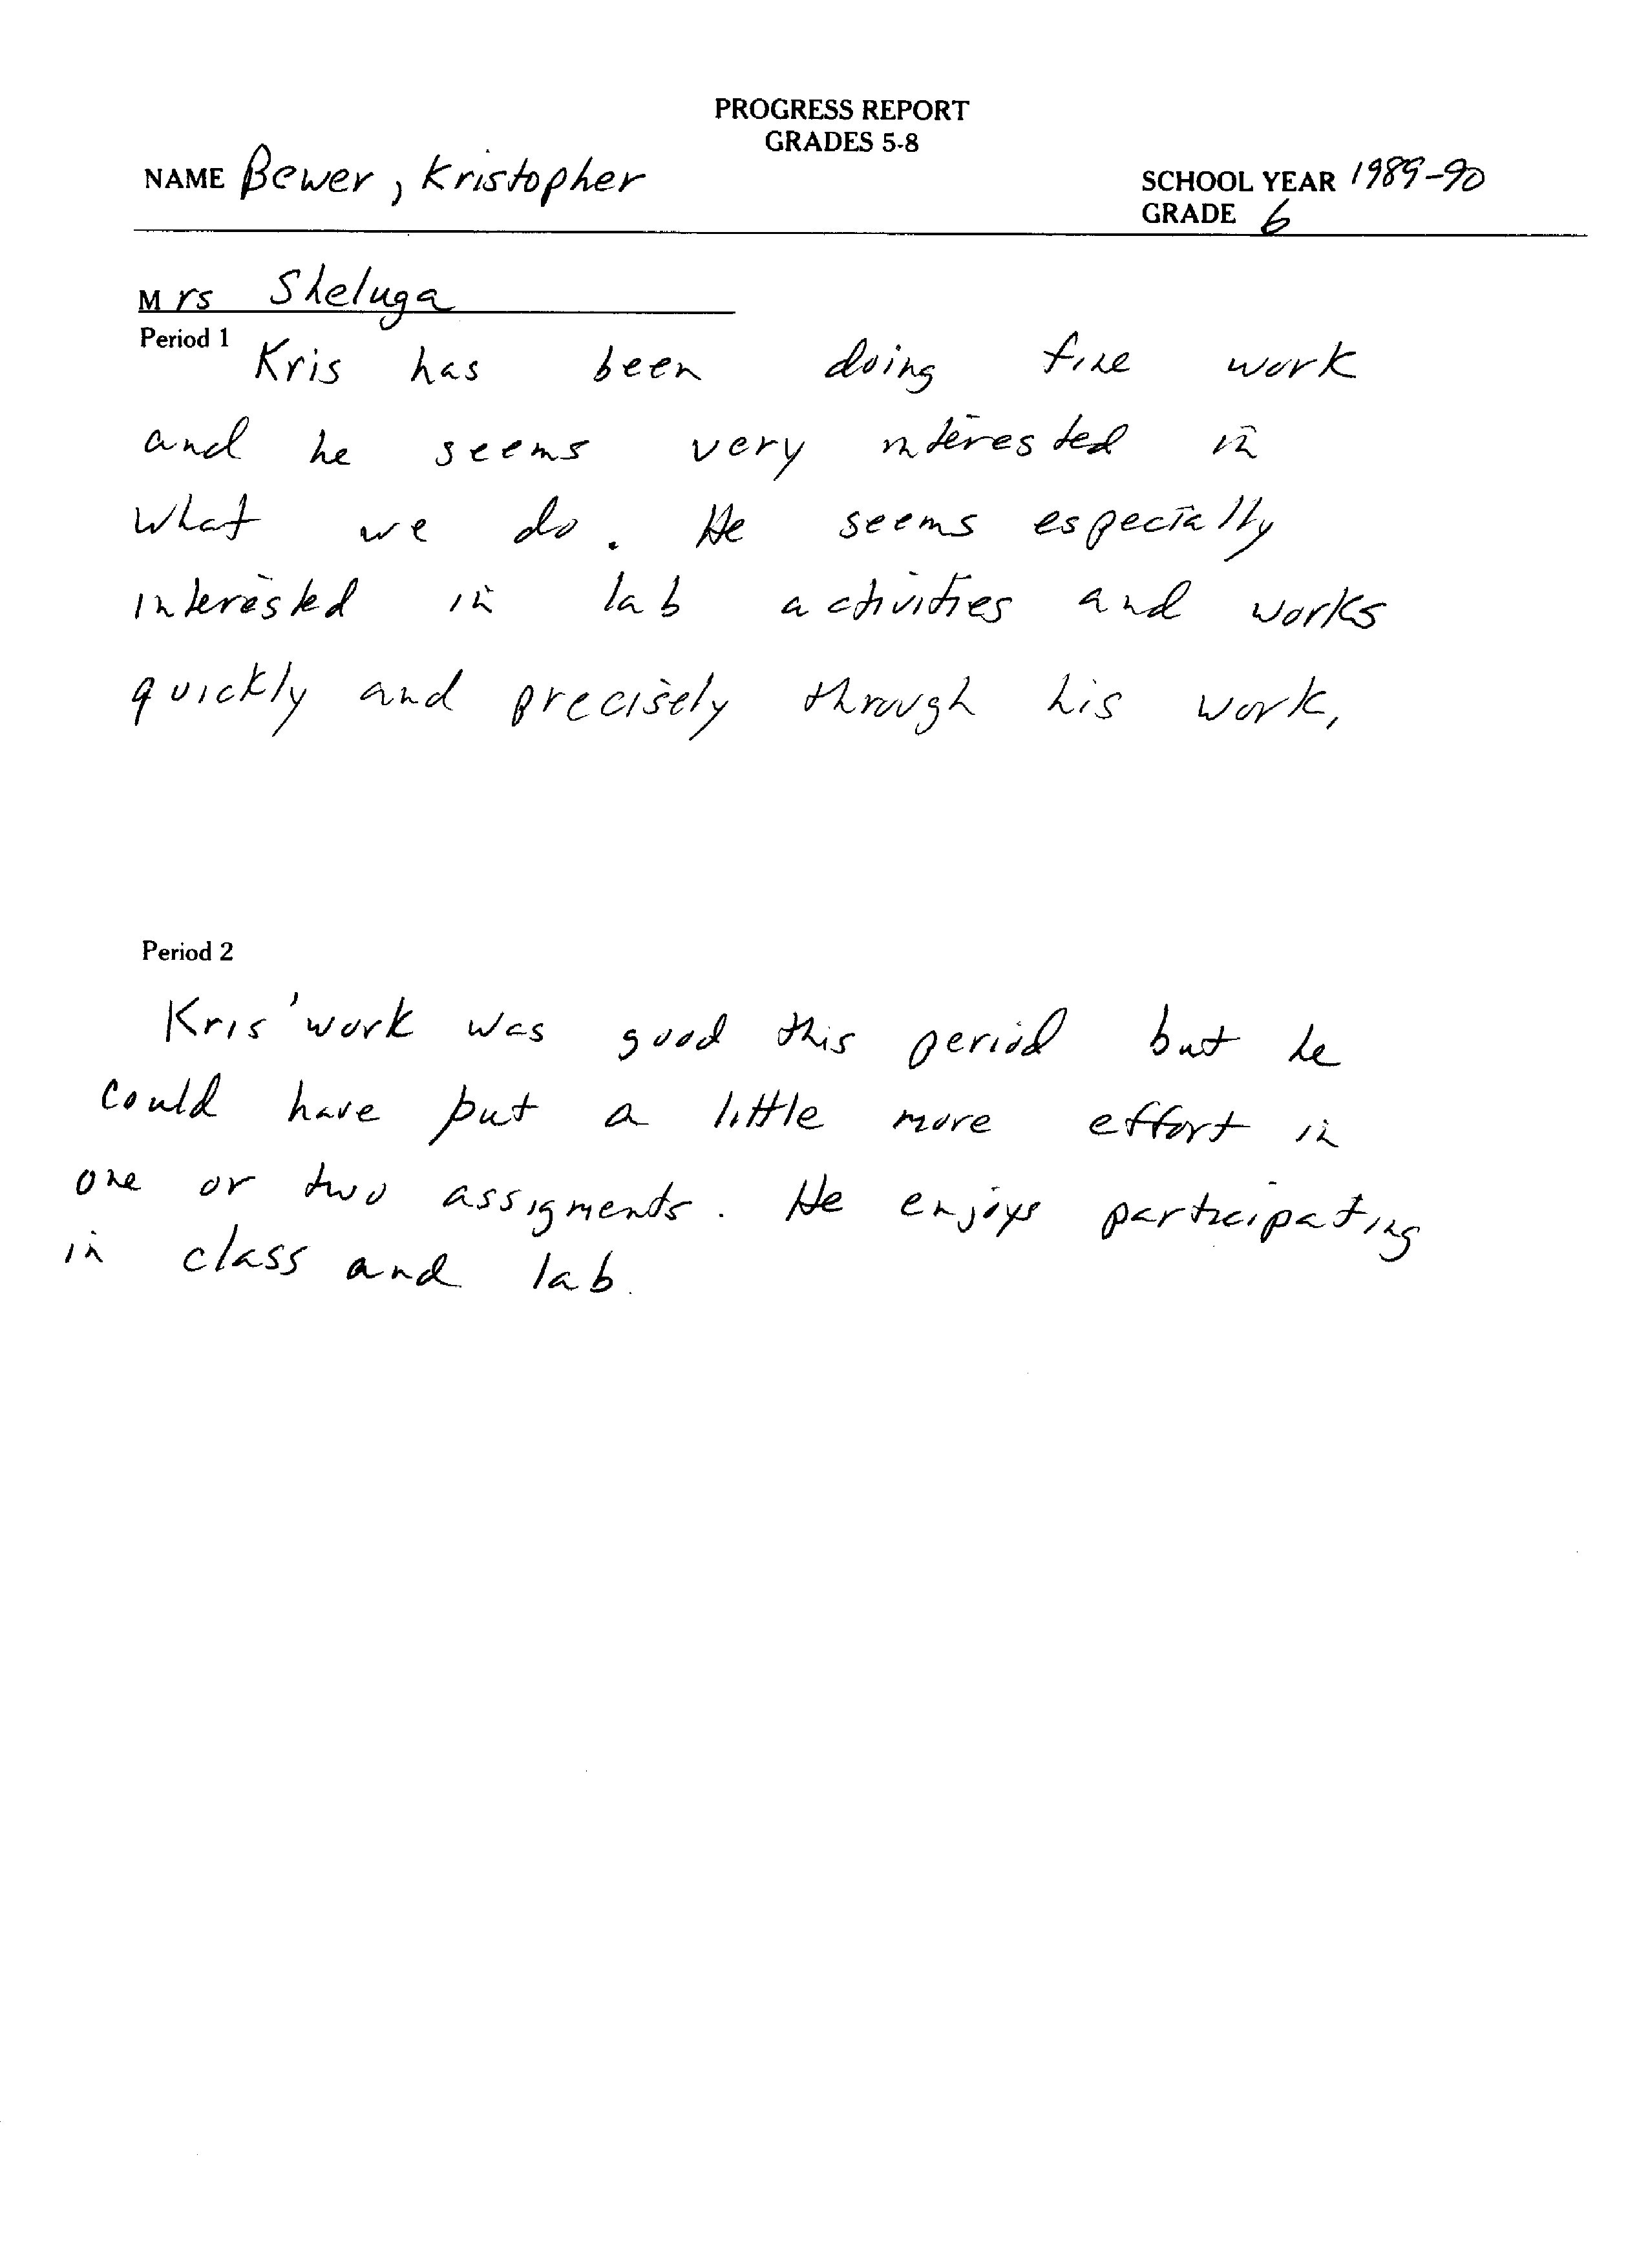 PROGRESS REPORT
GRADES 5-8
NAME Bewer, Kristopher
SCHOOL YEAR 1989-90
GRADE 6
Mrs Sheluga
Period 1
Kris has been doing fine work
and he seems very interested in
what we do. He seems especially
interested in lab activities and works
quickly and precisely through his work,
Period 2
Kris' work was good this period but he
could have put a little more effort in
one or two assigments. He enjoys participating
in class and lab.